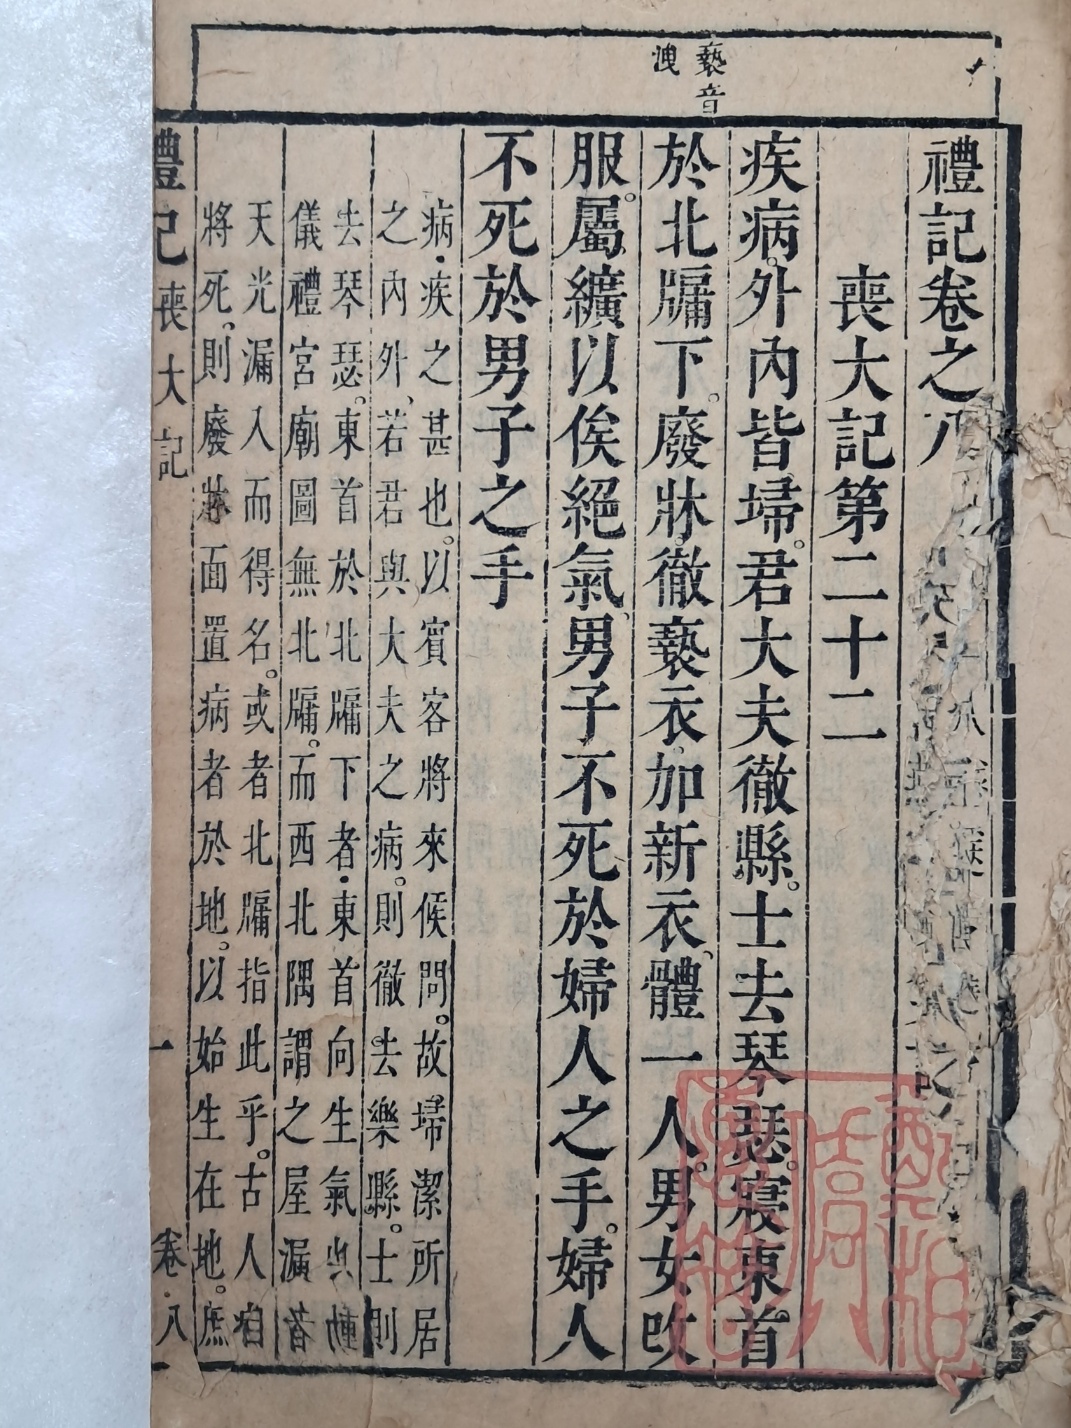 褻音
洩
禮記卷之八
喪大記第二十二
疾病。外內皆埽。君大夫徹縣。士去琴瑟。寢東首
於北牖下。廢牀。徹褻衣。加新衣、體一人。男女改
服。屬纊以俟絕氣、男子不死於婦人之手。婦人
不死於男子之手
病·疾之甚也。以賓客將來候問。故埽潔所居
之內外、若君與大夫之病。則徹去樂縣。士則
去琴瑟。東首於北牖下者·東首向生氣也
儀禮宮廟圖無北牖。而西北隅謂之屋漏
天光漏入而得名。或者北牖指此乎。古人
將死、則廢牀面置病者於地。以始生在地。庶
禮記喪大記 一 卷八